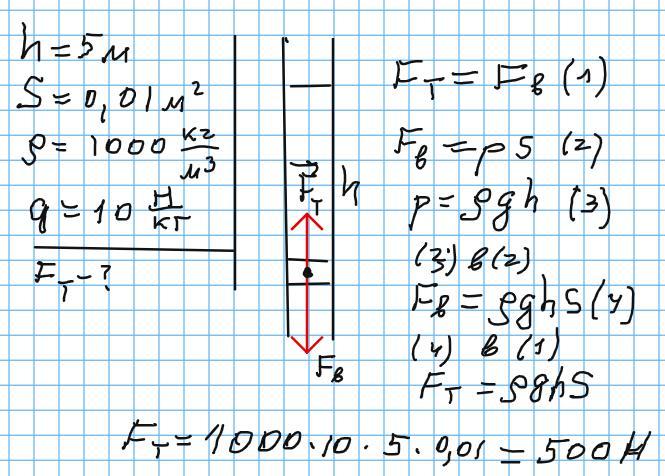 h = 5 м
S = 0,01 м²
ρ = 1000 кг/м³
g = 10 Н/кг
F_T - ?
F_T
h
F_в
F_T = F_в (1)
F_в = p S (2)
p = ρgh (3)
(3) в (2)
F_в = ρghS (4)
(4) в (1)
F_T = ρghS
F_T = 1000·10·5·0,01 = 500 Н